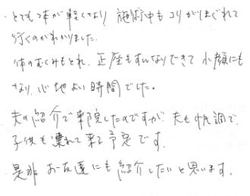 ・とても体が軽くなり 施術中も コリがほぐれて
行くのがわかりました。
体のむくみもとれ、正座もすんなりできて 小顔にも
なり、心地よい時間でした。
夫の紹介で来院したのですが 夫も快調で、
子供も連れて来る予定です。
是非 お友達にも紹介したいと思います。